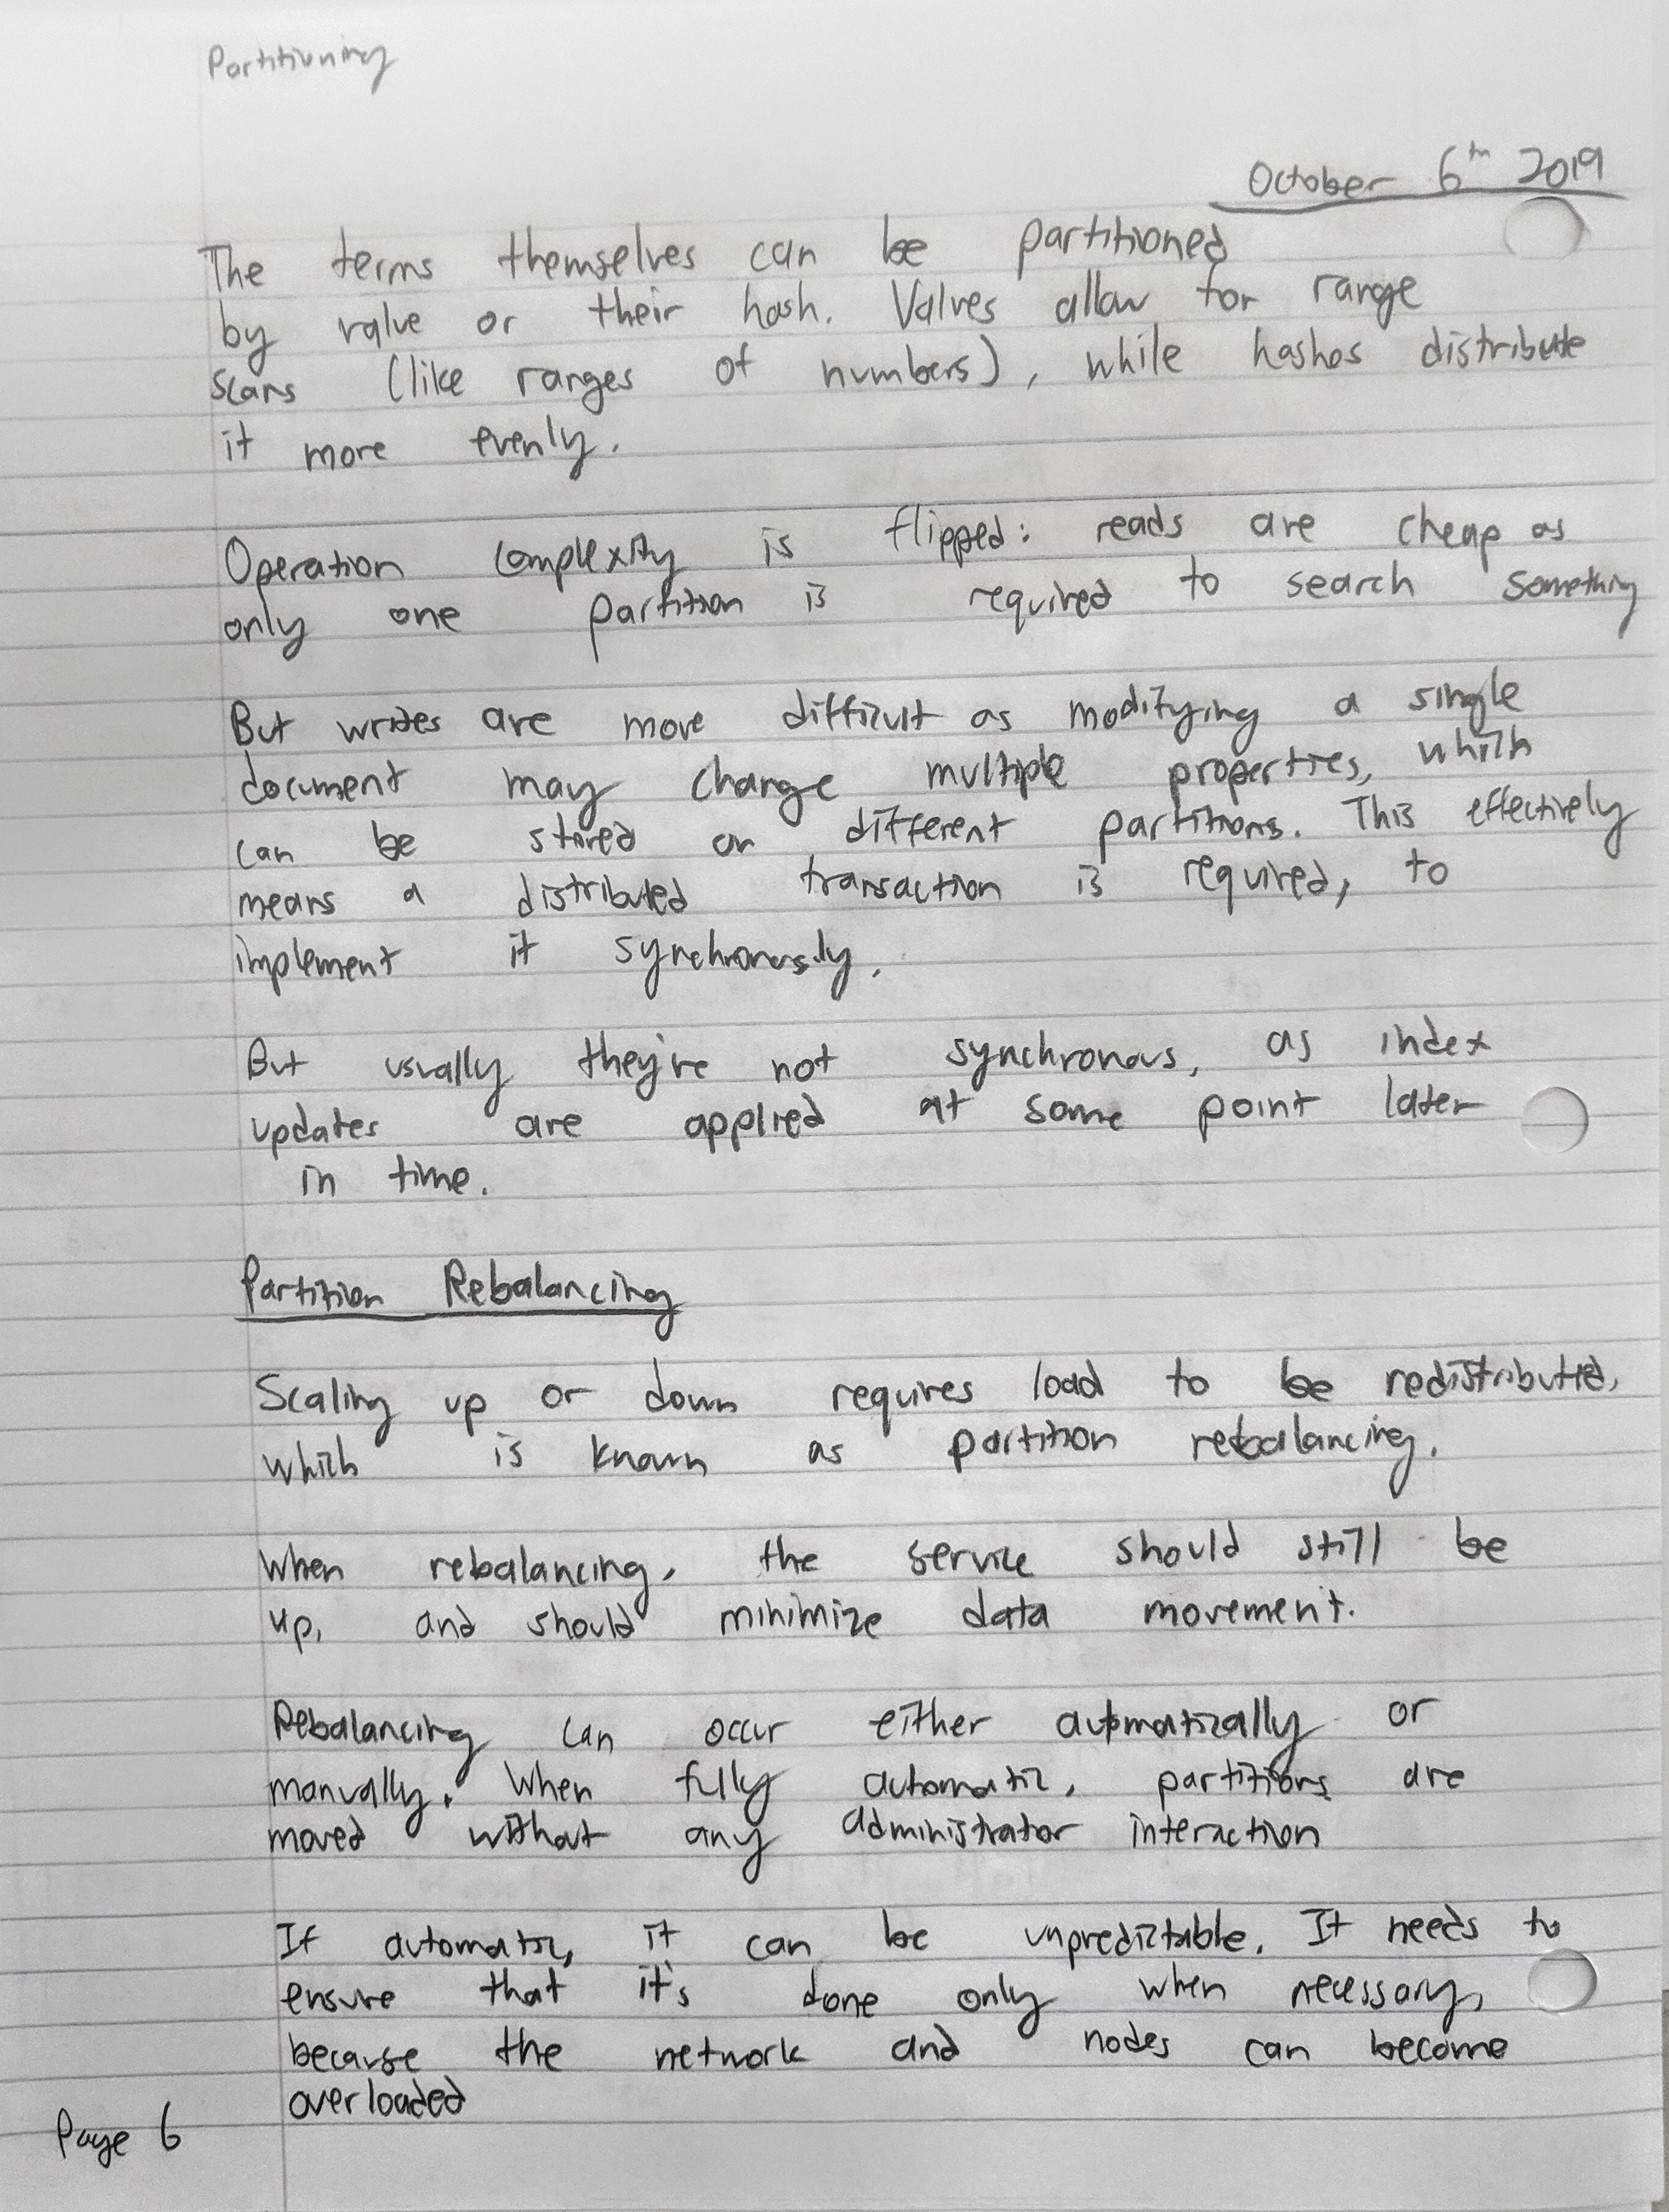 Partitioning
October 6th 2019
The terms themselves can be partitioned
by value or their hash. Values allow for range
scans (like ranges of numbers), while hashes distribute
it more evenly.
Operation complexity is flipped: reads are cheap as
only one partition is required to search something
But writes are more difficult as modifying a single
document may change multiple properties, which
can be stored on different partitions. This effectively
means a distributed transaction is required, to
implement it synchronously.
But usually they're not synchronous, as index
updates are applied at some point later
in time.
Partition Rebalancing
Scaling up or down requires load to be redistributed,
which is known as partition rebalancing.
When rebalancing, the service should still be
up, and should minimize data movement.
Rebalancing can occur either automatically or
manually. When fully automatic, partitions are
moved without any administrator interaction
If automatic, it can be unpredictable. It needs to
ensure that it's done only when necessary,
because the network and nodes can become
overloaded
Page 6